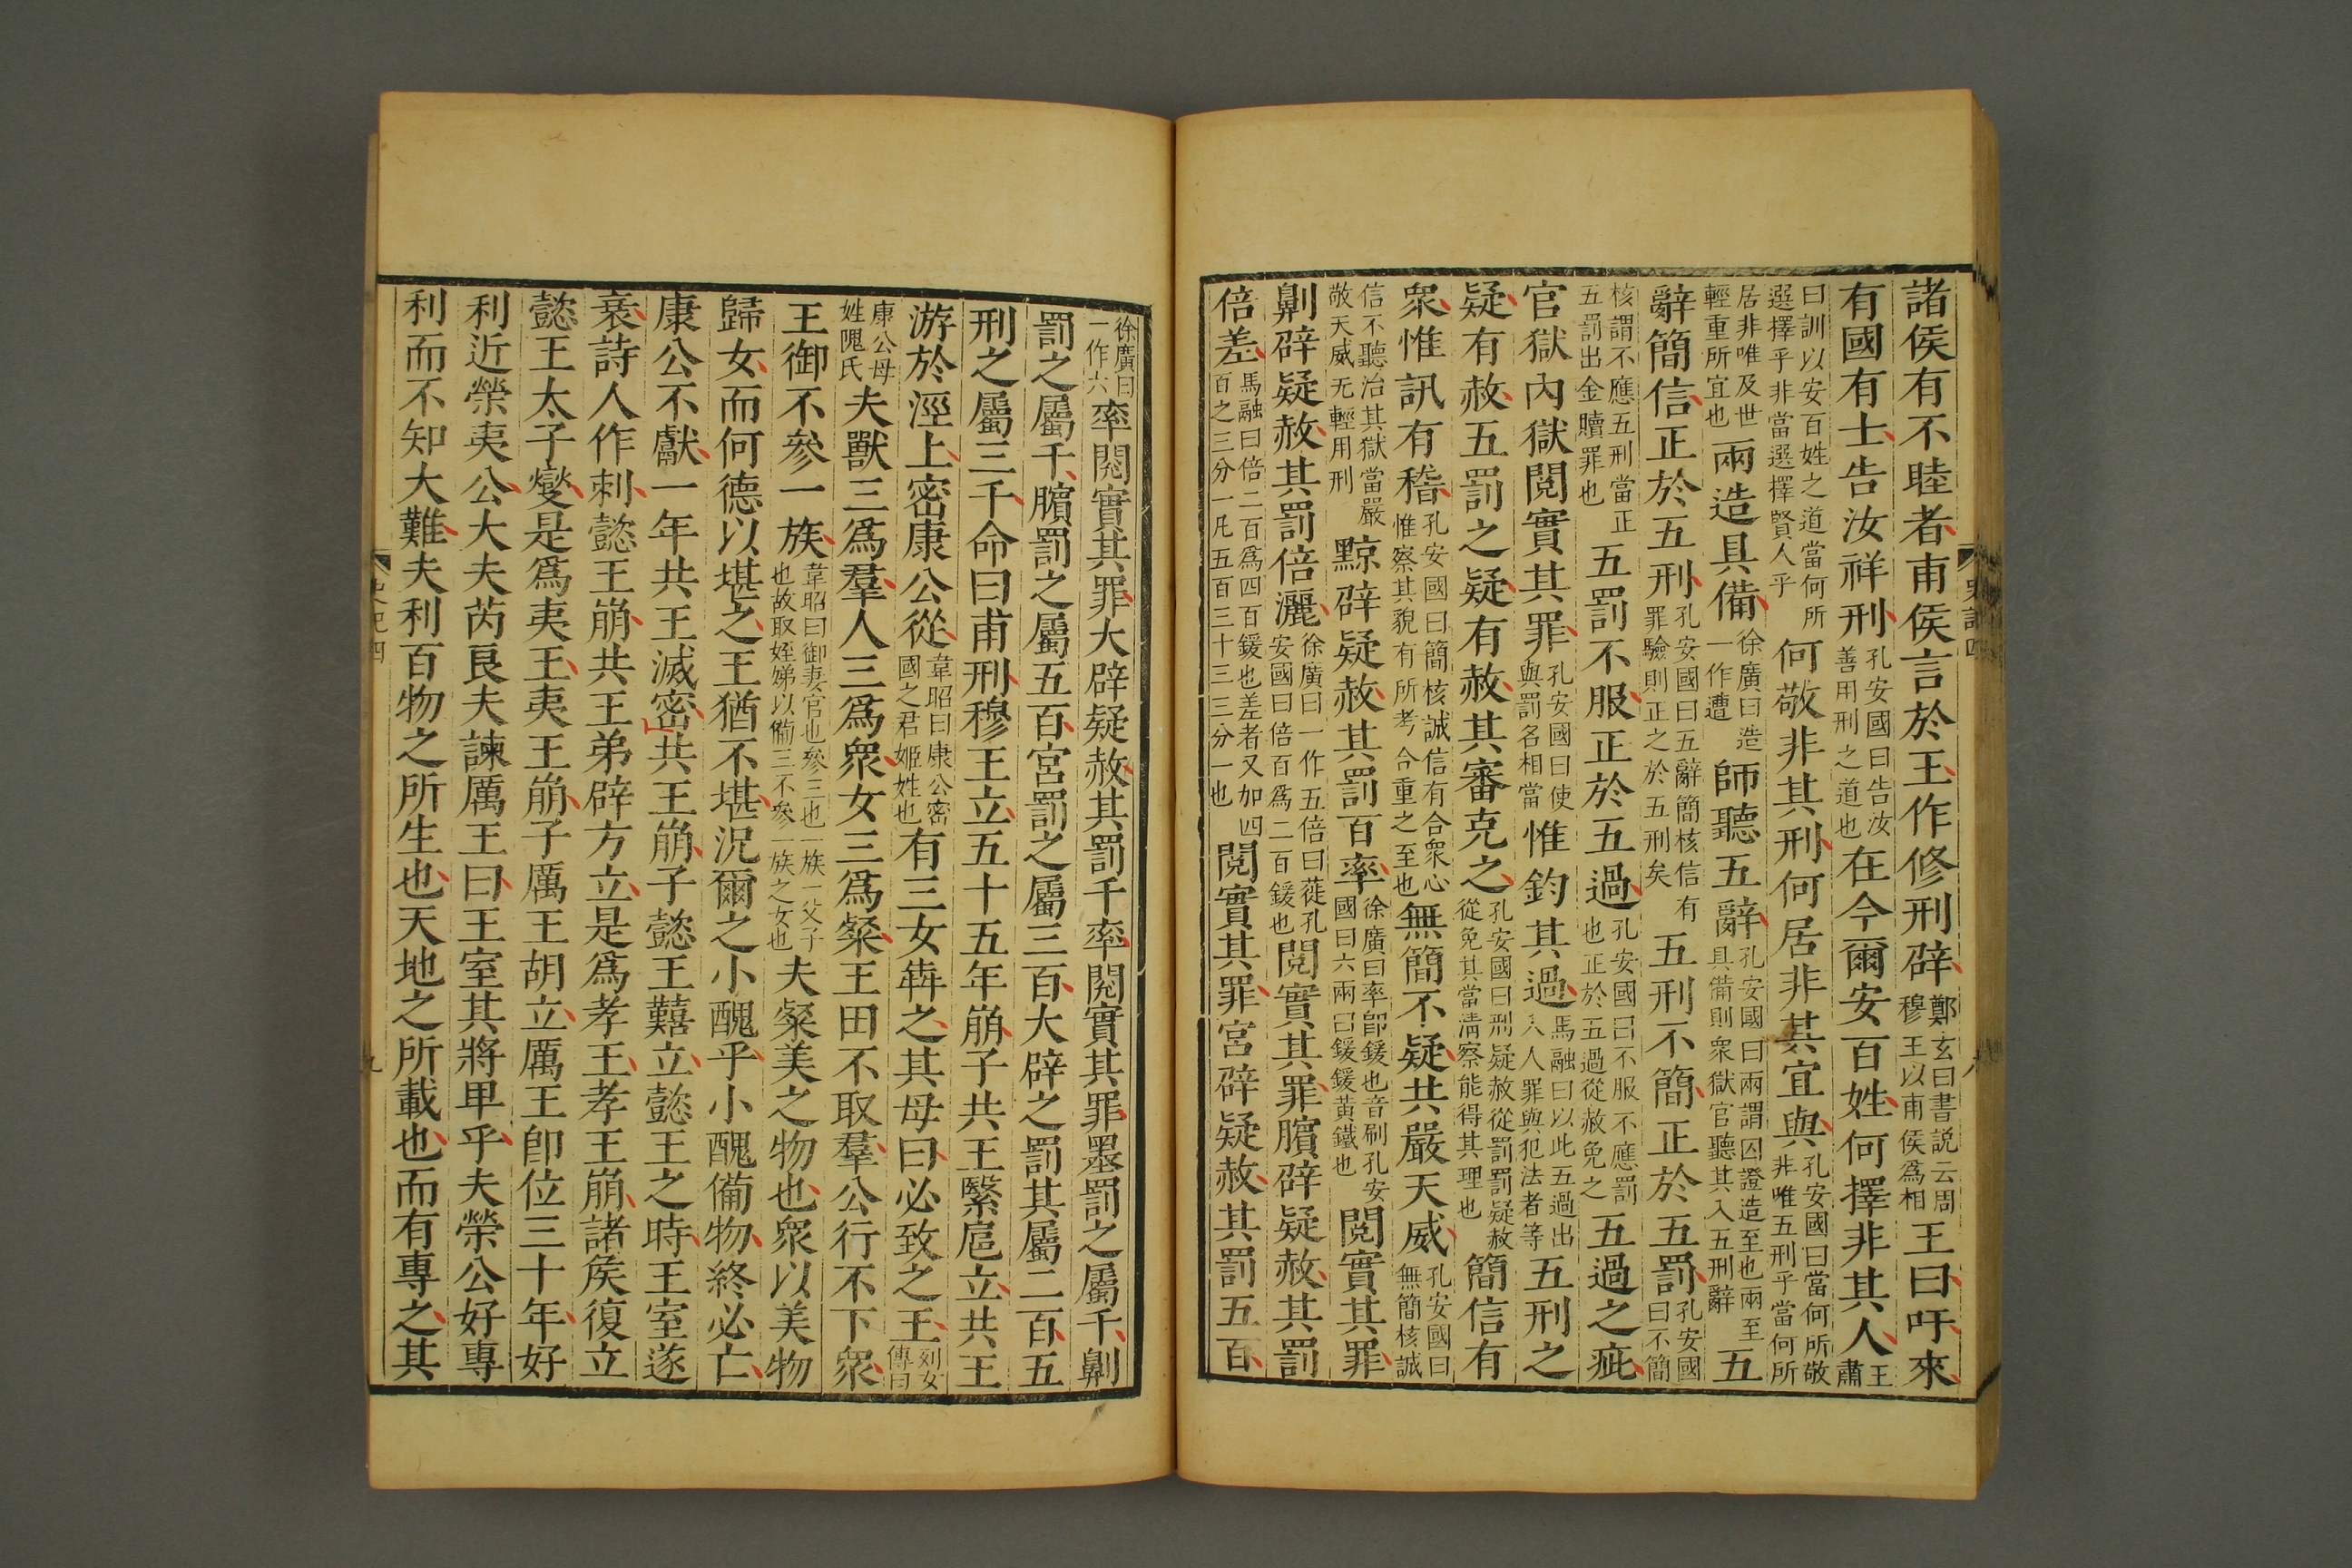 諸侯有不睦者甫侯言於王作修刑辟鄭玄曰書説云周穆王以甫侯爲相王曰吁來
有國有士告汝祥刑孔安國曰告汝善用刑之道也在今爾安百姓何擇非其人王肅
曰訓以安百姓之道當何所選擇乎非當選擇賢人乎何敬非其刑何居非其宜與孔安國曰當何所敬非唯五刑乎當何所
居非唯及世輕重所宜也兩造具備徐廣曰造一作遭師聽五辭孔安國曰兩謂囚證造至也兩至具備則衆獄官聽其入五刑辭五
辭簡信正於五刑孔安國曰五辭簡核信有罪驗則正之於五刑矣五刑不簡正於五罰孔安國曰不簡
核謂不應五刑當正五罰出金贖罪也五罰不服正於五過孔安國曰不服不應罰也正於五過從赦免之五過之疵
官獄內獄閱實其罪孔安國曰使與罰名相當惟鈞其過馬融曰以此五過出入人罪與犯法者等五刑之
疑有赦五罰之疑有赦其審克之孔安國曰刑疑赦從罰罰疑赦從免其當清察能得其理也簡信有
衆惟訊有稽孔安國曰簡核誠信有合衆心惟察其貌有所考合重之至也無簡不疑共嚴天威孔安國曰無簡核誠
信不聽治其獄當嚴敬天威无輕用刑黥辟疑赦其罰百率徐廣曰率卽鍰也音刷孔安國曰六兩曰鍰鍰黃鐵也閱實其罪
劓辟疑赦其罰倍灑徐廣曰一作五倍曰蓰孔安國曰倍百爲二百鍰也閱實其罪臏辟疑赦其罰
倍差馬融曰倍二百爲四百鍰也差者又加四百之三分一凡五百三十三三分一也閱實其罪宮辟疑赦其罰五百
徐廣曰一作六率閱實其罪大辟疑赦其罰千率閱實其罪墨罰之屬千劓
罰之屬千臏罰之屬五百宮罰之屬三百大辟之罰其屬二百五
刑之屬三千命曰甫刑穆王立五十五年崩子共王繄扈立共王
游於涇上密康公從韋昭曰康公密國之君姬姓也有三女犇之其母曰必致之王列女傳曰
康公母姓隗氏夫獸三爲羣人三爲衆女三爲粲王田不取羣公行不下衆
王御不參一族韋昭曰御妻官也參三也一族一父子也故取姪娣以備三不參一族之女也夫粲美之物也衆以美物
歸女而何德以堪之王猶不堪況爾之小醜乎小醜備物終必亡
康公不獻一年共王滅密共王崩子懿王囏立懿王之時王室遂
衰詩人作刺懿王崩共王弟辟方立是爲孝王孝王崩諸矦復立
懿王太子燮是爲夷王夷王崩子厲王胡立厲王卽位三十年好
利近榮夷公大夫芮良夫諫厲王曰王室其將卑乎夫榮公好專
利而不知大難夫利百物之所生也天地之所載也而有專之其